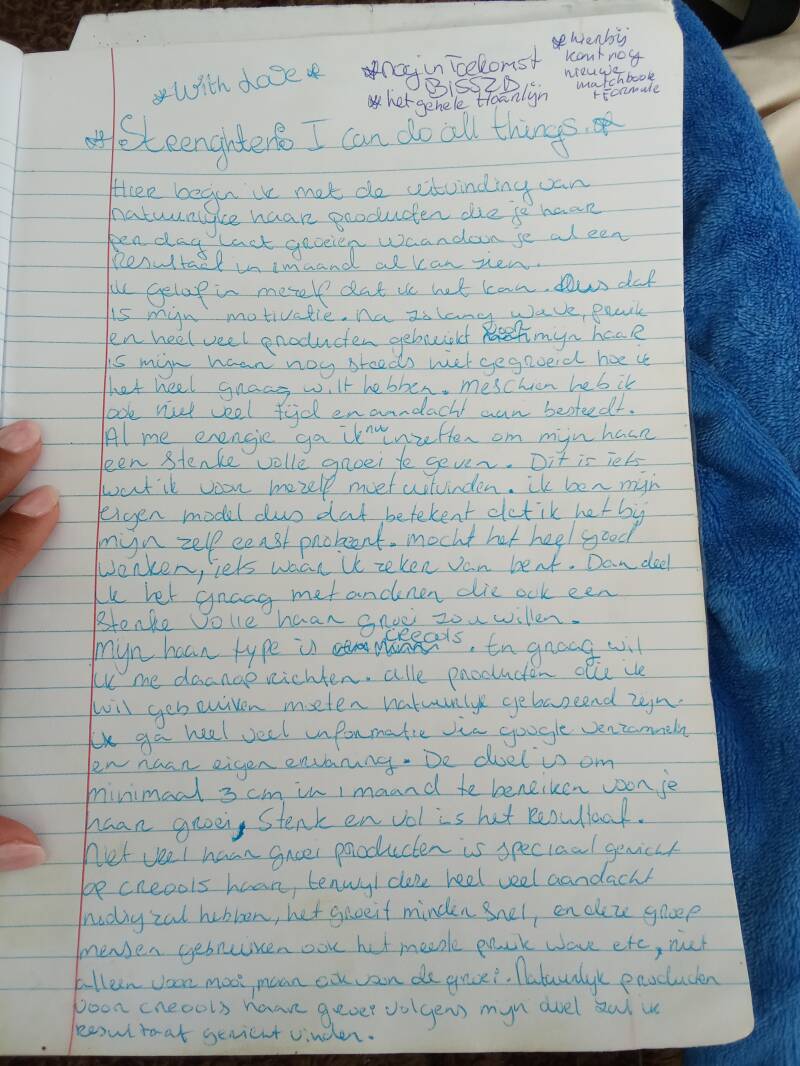 *With Love*
*nog in Toekomst
BISSZD
*het gehele Haarlijn
*hierbij
komt nog
nieuwe
matchbook
+Formule
*Strenghtens I can do all things.*
Hier begin ik met de uitvinding van
natuurlijke haar producten die je haar
per dag laat groeien waardoor je al een
Resultaat in 1 maand al kan zien.
ik gelof in mezelf dat ik het kan. Dus dat
is mijn motivatie. Na zolang wave, pruik
en heel veel producten gebruikt voor mijn haar
is mijn haar nog steeds niet gegroeid hoe ik
het heel graag wilt hebben. Meschien heb ik
ook niet veel tijd en anndacht aan besteedt.
Al me energie ga ik nu inzetten om mijn haar
een sterke volle groei te geven. Dit is iets
wat ik voor mezelf moet uitvinden. ik ben mijn
eigen model dus dat betekent dat ik het bij
mijn zelf eerst probeert. mocht het heel goed
werken, iets waar ik zeker van bent. Dan deel
ik het graag met anderen die ook een
sterke volle haar groei zou willen.
Mijn haar type is creools. En graag wil
ik me daarop richten. alle producten die ik
wil gebruiken moeten natuurlijk gebaseerd zijn.
ik ga heel veel informatie via google verzamelen
en naar eigen ervaring. De doel is om
minimaal 3 cm in 1 maand te bereiken voor je
haar groei, Sterk en vol is het Resultaat.
Niet veel haar groei producten is speciaal gericht
op creools haar, terwijl deze heel veel aandacht
nodig zal hebben, het groeit minder snel, en deze groep
mensen gebruiken ook het meeste pruik wave etc, niet
alleen voor mooi, maar ook voor de groei. Natuurlijk producten
voor creools haar groei volgens mijn doel zal ik
Resultaat gericht vinden.